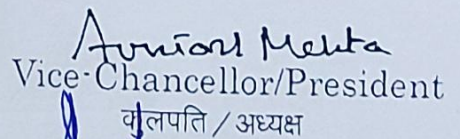 Mehta
Vice-Chancellor/President
कुलपति / अध्यक्ष